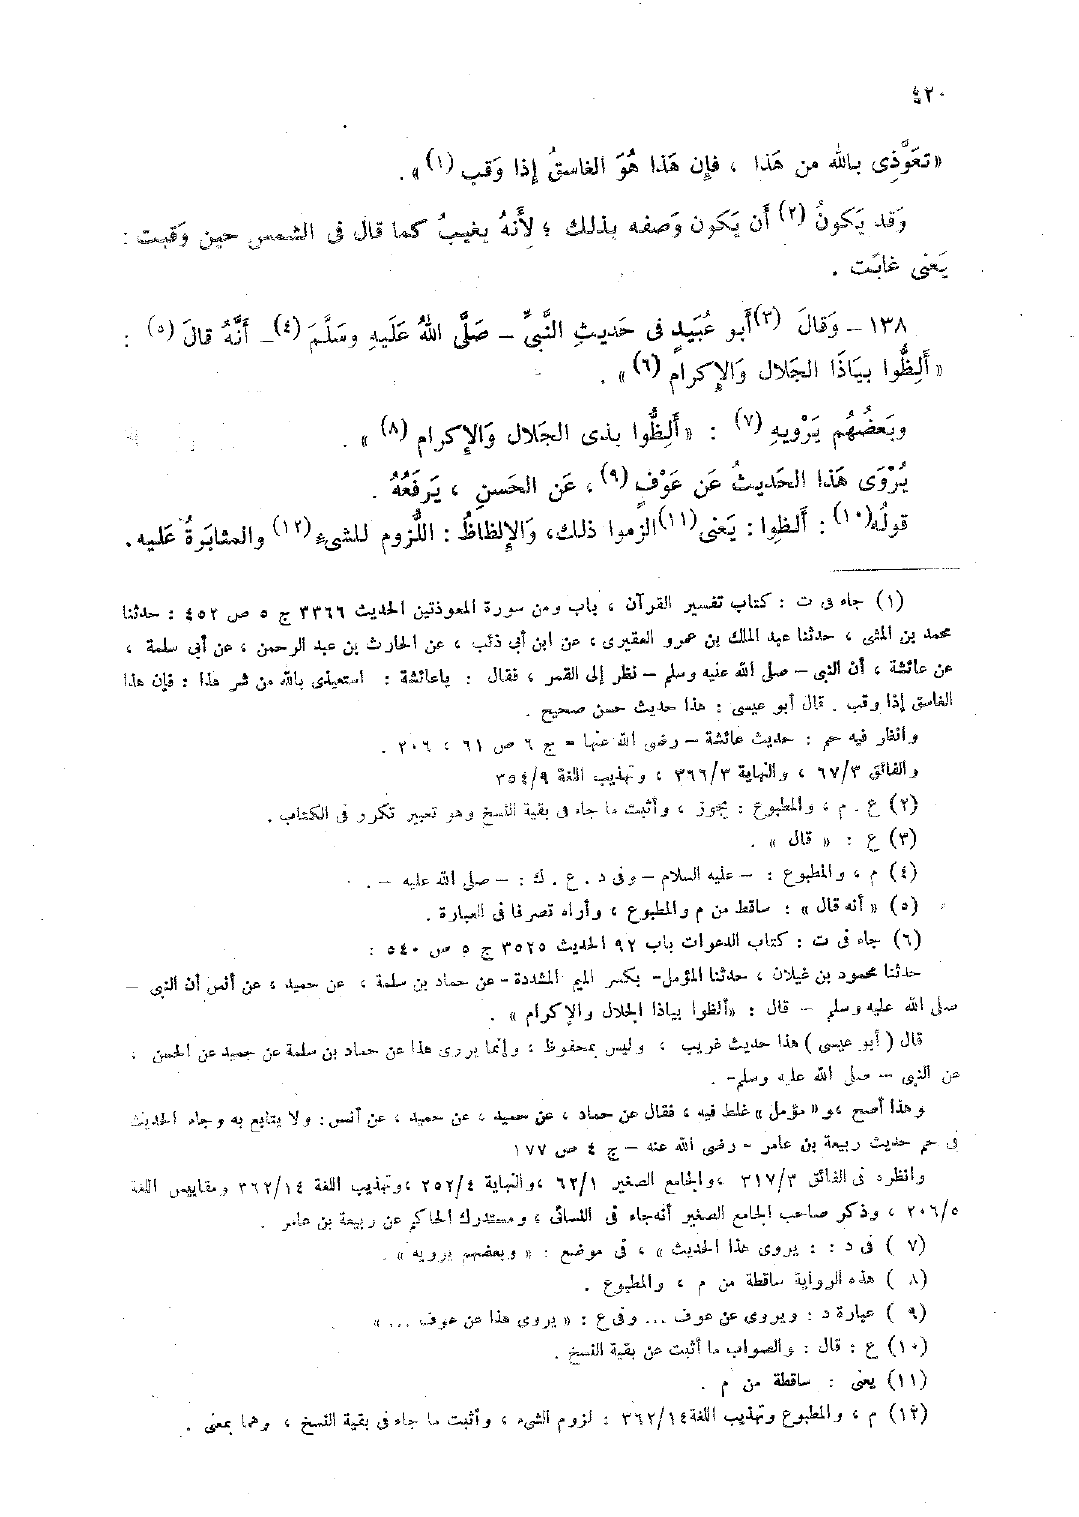 ٤٢٠
«تعَوَّذِى بالله من هَذا ، فإن هَذا هُوَ الغاسقُ إذا وَقب (١)» .
وَقد يَكونُ (٢) أن يَكون وَصفه بذلك ؛ لِأَنهُ يغيبُ كما قال فى الشمس حين وَقبت :
يَعنى غابَت .
١٣٨ – وَقالَ (٣) أبو عُبَيدٍ فى حَديثِ النَّبىِّ – صَلَّى اللهُ عَلَيهِ وسَلَّمَ (٤) – أنَّهُ قالَ (٥) :
«أَلِظُّوا بيَاذَا الجَلال وَالإكرام (٦)» .
وبَعضُهُم يَرْويهِ (٧) : «أَلِظُّوا بذى الجَلال وَالإكرام (٨)» .
يُرْوَى هَذا الحَديثُ عَن عَوْفٍ (٩) ، عَن الحَسنِ ، يَرفَعُهُ .
قولُه (١٠) : ألظِوا : يَعنى (١١) الزموا ذلك، وَالإلظاظُ : اللُّزوم للشىءِ (١٢) والمثابَرةُ عَليه .
(١) جاء فى ت : كتاب تفسير القرآن ، باب ومن سورة المعوذتين الحديث ٣٣٦٦ ج ٥ ص ٤٥٢ : حدثنا
محمد بن المثنى ، حدثنا عبد الملك بن عمرو العقيرى ، عن ابن أبى ذئب ، عن الحارث بن عبد الرحمن ، عن أبى سلمة ،
عن عائشة ، أن النبى – صلى الله عليه وسلم – نظر إلى القمر ، فقال : ياعائشة : استعيذى بالله من شر هذا : فإن هذا
الغاسق إذا وقب . قال أبو عيسى : هذا حديث حسن صحيح .
وانظر فيه حم : حديث عائشة – رضى الله عنها – ج ٦ ص ٦١ ، ٢٠٦ .
والفائق ٦٧/٣ ، والنهاية ٣٦٦/٣ ، وتهذيب اللغة ٣٥٤/٩
(٢) ع . م ، والمطبوع : يجوز ، وأثبت ما جاء فى بقية النسخ وهو تعبير تكرر فى الكتاب .
(٣) ع : « قال » .
(٤) م ، والمطبوع : – عليه السلام – وفى د . ع . ك : – صلى الله عليه – .
(٥) « أنه قال » : ساقط من م والمطبوع ، وأراه تصرفا فى العبارة .
(٦) جاء فى ت : كتاب الدعوات باب ٩٢ الحديث ٣٥٢٥ ج ٥ ص ٥٤٠ :
حدثنا محمود بن غيلان ، حدثنا المؤمل- بكسر الميم المشددة - عن حماد بن سلمة ، عن حميد ، عن أنس أن النبى –
صلى الله عليه وسلم – قال : «ألظوا بياذا الجلال والإكرام» .
قال ( أبو عيسى ) هذا حديث غريب ، وليس بمحفوظ ، وإنما يروى هذا عن حماد بن سلمة عن حميد عن الحسن ،
عن النبى – صلى الله عليه وسلم- .
وهذا أصح ،و« مؤمل » غلط فيه ، فقال عن حماد ، عن حميد ، عن حميد ، عن أنس : ولا يتابع به وجاء الحديث
فى حم حديث ربيعة بن عامر - رضى الله عنه – ج ٤ ص ١٧٧
وانظره فى الفائق ٣١٧/٣ ،والجامع الصغير ٦٢/١ ،والنهاية ٢٥٢/٤ ،وتهذيب اللغة ٣٦٢/١٤ ومقاييس اللغة
٢٠٦/٥ ، وذكر صاحب الجامع الصغير أنه جاء فى النسائى ، ومستدرك الحاكم عن ربيعة بن عامر .
(٧ ) فى د : : يروى هذا الحديث » ، فى موضع : « وبعضهم يرويه » .
(٨ ) هذه الرواية ساقطة من م ، والمطبوع .
(٩ ) عبارة د : ويروى عن عوف ... وفى ع : « يروى هذا عن عوف ... »
(١٠) ع : قال : والصواب ما أثبت عن بقية النسخ .
(١١) يعنى : ساقطة من م .
(١٢) م ، والمطبوع وتهذيب اللغة ٣٦٢/١٤ : لزوم الشىء ، وأثبت ما جاء فى بقية النسخ ، وهما بمعنى .